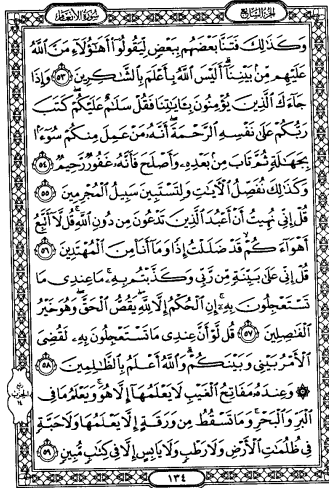 الجزء السابع سورة الأنعام
وَكَذَٰلِكَ فَتَنَّا بَعْضَهُم بِبَعْضٍ لِّيَقُولُوٓا۟ أَهَـٰٓؤُلَآءِ مَنَّ ٱللَّهُ
عَلَيْهِم مِّنۢ بَيْنِنَآ أَلَيْسَ ٱللَّهُ بِأَعْلَمَ بِٱلشَّـٰكِرِينَ ٥٣ وَإِذَا
جَآءَكَ ٱلَّذِينَ يُؤْمِنُونَ بِـَٔايَـٰتِنَا فَقُلْ سَلَـٰمٌ عَلَيْكُمْ كَتَبَ
رَبُّكُمْ عَلَىٰ نَفْسِهِ ٱلرَّحْمَةَ أَنَّهُۥ مَنْ عَمِلَ مِنكُمْ سُوٓءًۢا
بِجَهَـٰلَةٍ ثُمَّ تَابَ مِنۢ بَعْدِهِۦ وَأَصْلَحَ فَأَنَّهُۥ غَفُورٌ رَّحِيمٌ ٥٤
وَكَذَٰلِكَ نُفَصِّلُ ٱلْـَٔايَـٰتِ وَلِتَسْتَبِينَ سَبِيلُ ٱلْمُجْرِمِينَ ٥٥
قُلْ إِنِّى نُهِيتُ أَنْ أَعْبُدَ ٱلَّذِينَ تَدْعُونَ مِن دُونِ ٱللَّهِ قُل لَّآ أَتَّبِعُ
أَهْوَآءَكُمْ قَدْ ضَلَلْتُ إِذًا وَمَآ أَنَا۠ مِنَ ٱلْمُهْتَدِينَ ٥٦
قُلْ إِنِّى عَلَىٰ بَيِّنَةٍ مِّن رَّبِّى وَكَذَّبْتُم بِهِۦ مَا عِندِى مَا
تَسْتَعْجِلُونَ بِهِۦٓ إِنِ ٱلْحُكْمُ إِلَّا لِلَّهِ يَقُصُّ ٱلْحَقَّ وَهُوَ خَيْرُ
ٱلْفَـٰصِلِينَ ٥٧ قُل لَّوْ أَنَّ عِندِى مَا تَسْتَعْجِلُونَ بِهِۦ لَقُضِىَ
ٱلْأَمْرُ بَيْنِى وَبَيْنَكُمْ وَٱللَّهُ أَعْلَمُ بِٱلظَّـٰلِمِينَ ٥٨
۞ وَعِندَهُۥ مَفَاتِحُ ٱلْغَيْبِ لَا يَعْلَمُهَآ إِلَّا هُوَ وَيَعْلَمُ مَا فِى
ٱلْبَرِّ وَٱلْبَحْرِ وَمَا تَسْقُطُ مِن وَرَقَةٍ إِلَّا يَعْلَمُهَا وَلَا حَبَّةٍ
فِى ظُلُمَـٰتِ ٱلْأَرْضِ وَلَا رَطْبٍ وَلَا يَابِسٍ إِلَّا فِى كِتَـٰبٍ مُّبِينٍ ٥٩
١٣٤